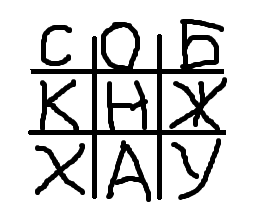 С О Б
К Н Ж
Х А У